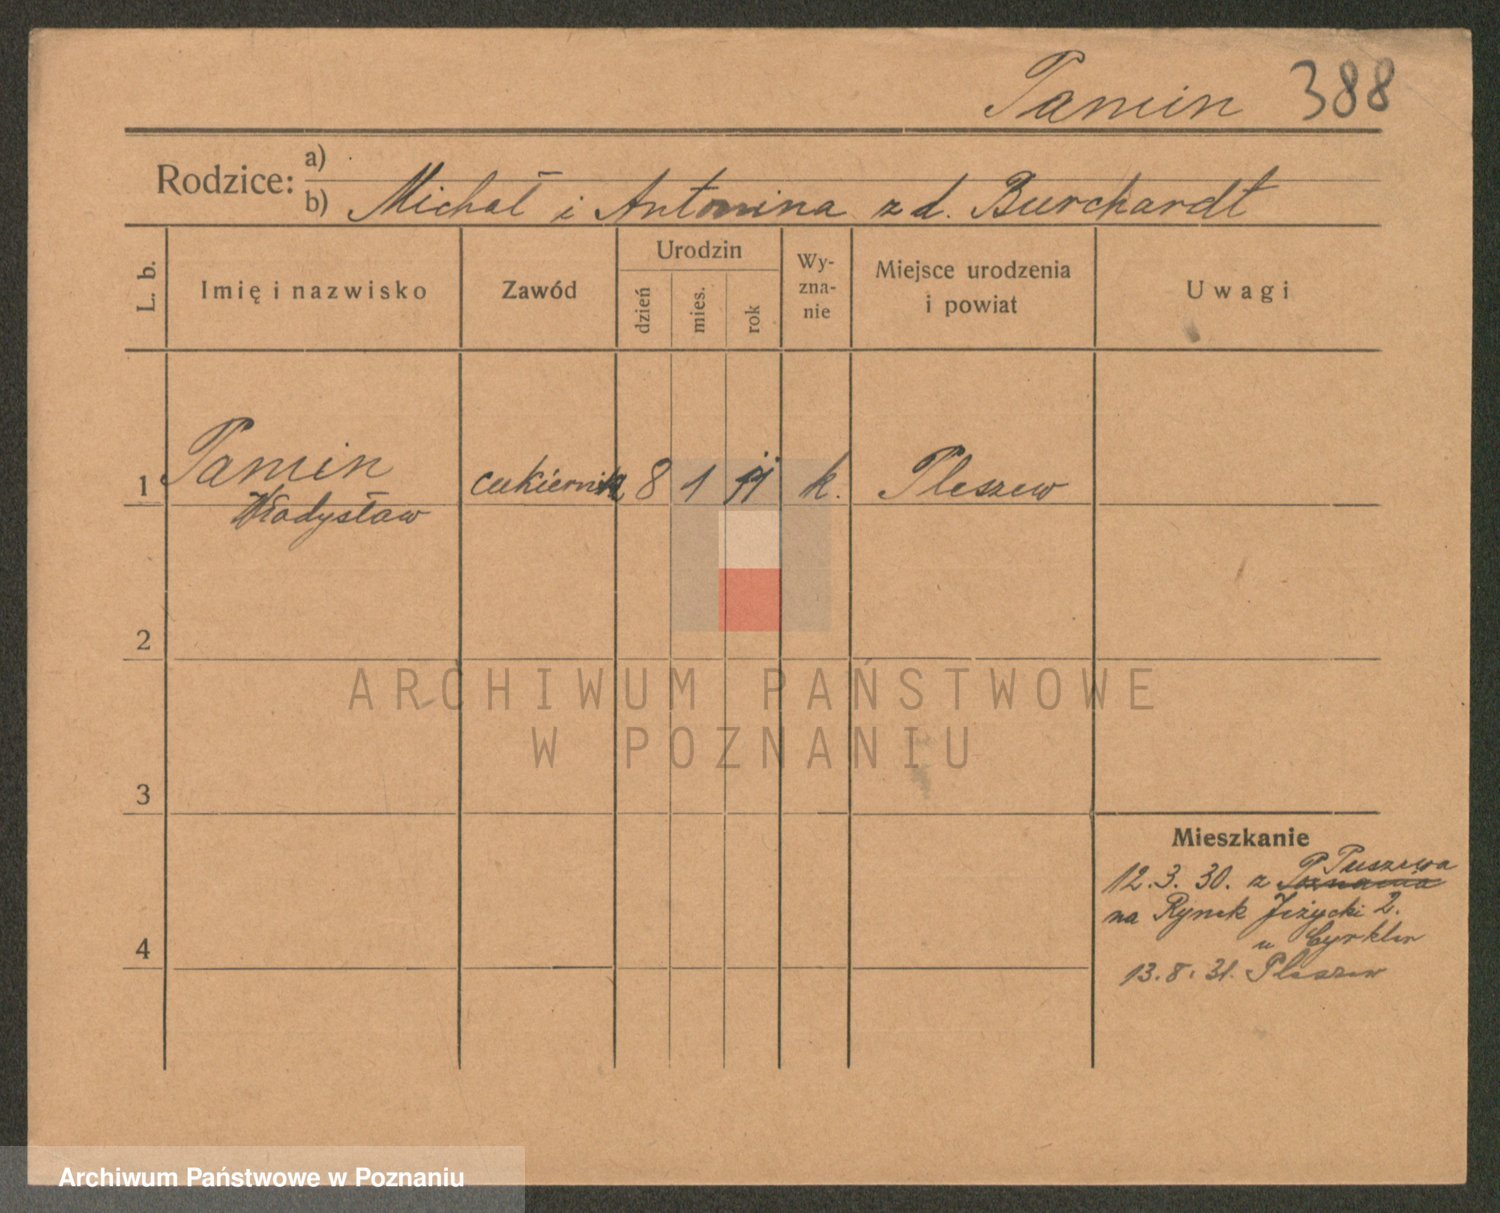 Tamin 388
Rodzice:
a)
b) Michał i Antonina z d. Burchardt
L. b.
Imię i nazwisko
Zawód
Urodzin
dzień
mies.
rok
Wy-
zna-
nie
Miejsce urodzenia
i powiat
Uwagi
1 Tamin cukiernik 8 1 11 k. Pleszew
Władysław
2
3
4
Mieszkanie
12.3.30. z Poznania
na Rynek Jeżycki 2.
u
13.8.31. Pleszew
ARCHIWUM PAŃSTWOWE
W POZNANIU
Archiwum Państwowe w Poznaniu